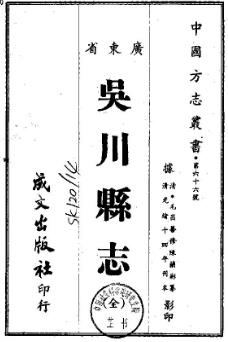 中國方志叢書·第六十六號
據清·毛昌善修陳蘭彬纂
清光緒十四年刊本
影印
廣東省
吳川縣志
SK120/14
成文出版社印行
全